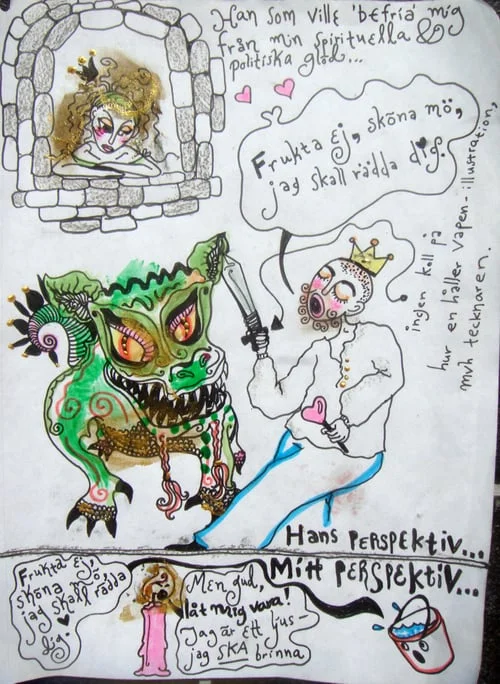 Han som ville 'befria' mig
från min spirituella &
politiska glöd...
Frukta ej, sköna mö,
jag skall rädda dig.
ingen koll på
hur en håller vapen-illustration,
mvh tecknaren.
Hans PERSPEKTIV...
Mitt PERSPEKTIV...
Frukta ej,
sköna mö,
jag skall rädda
dig.
Men gud,
låt mig vara!
Jag är ett ljus-
jag SKA brinna